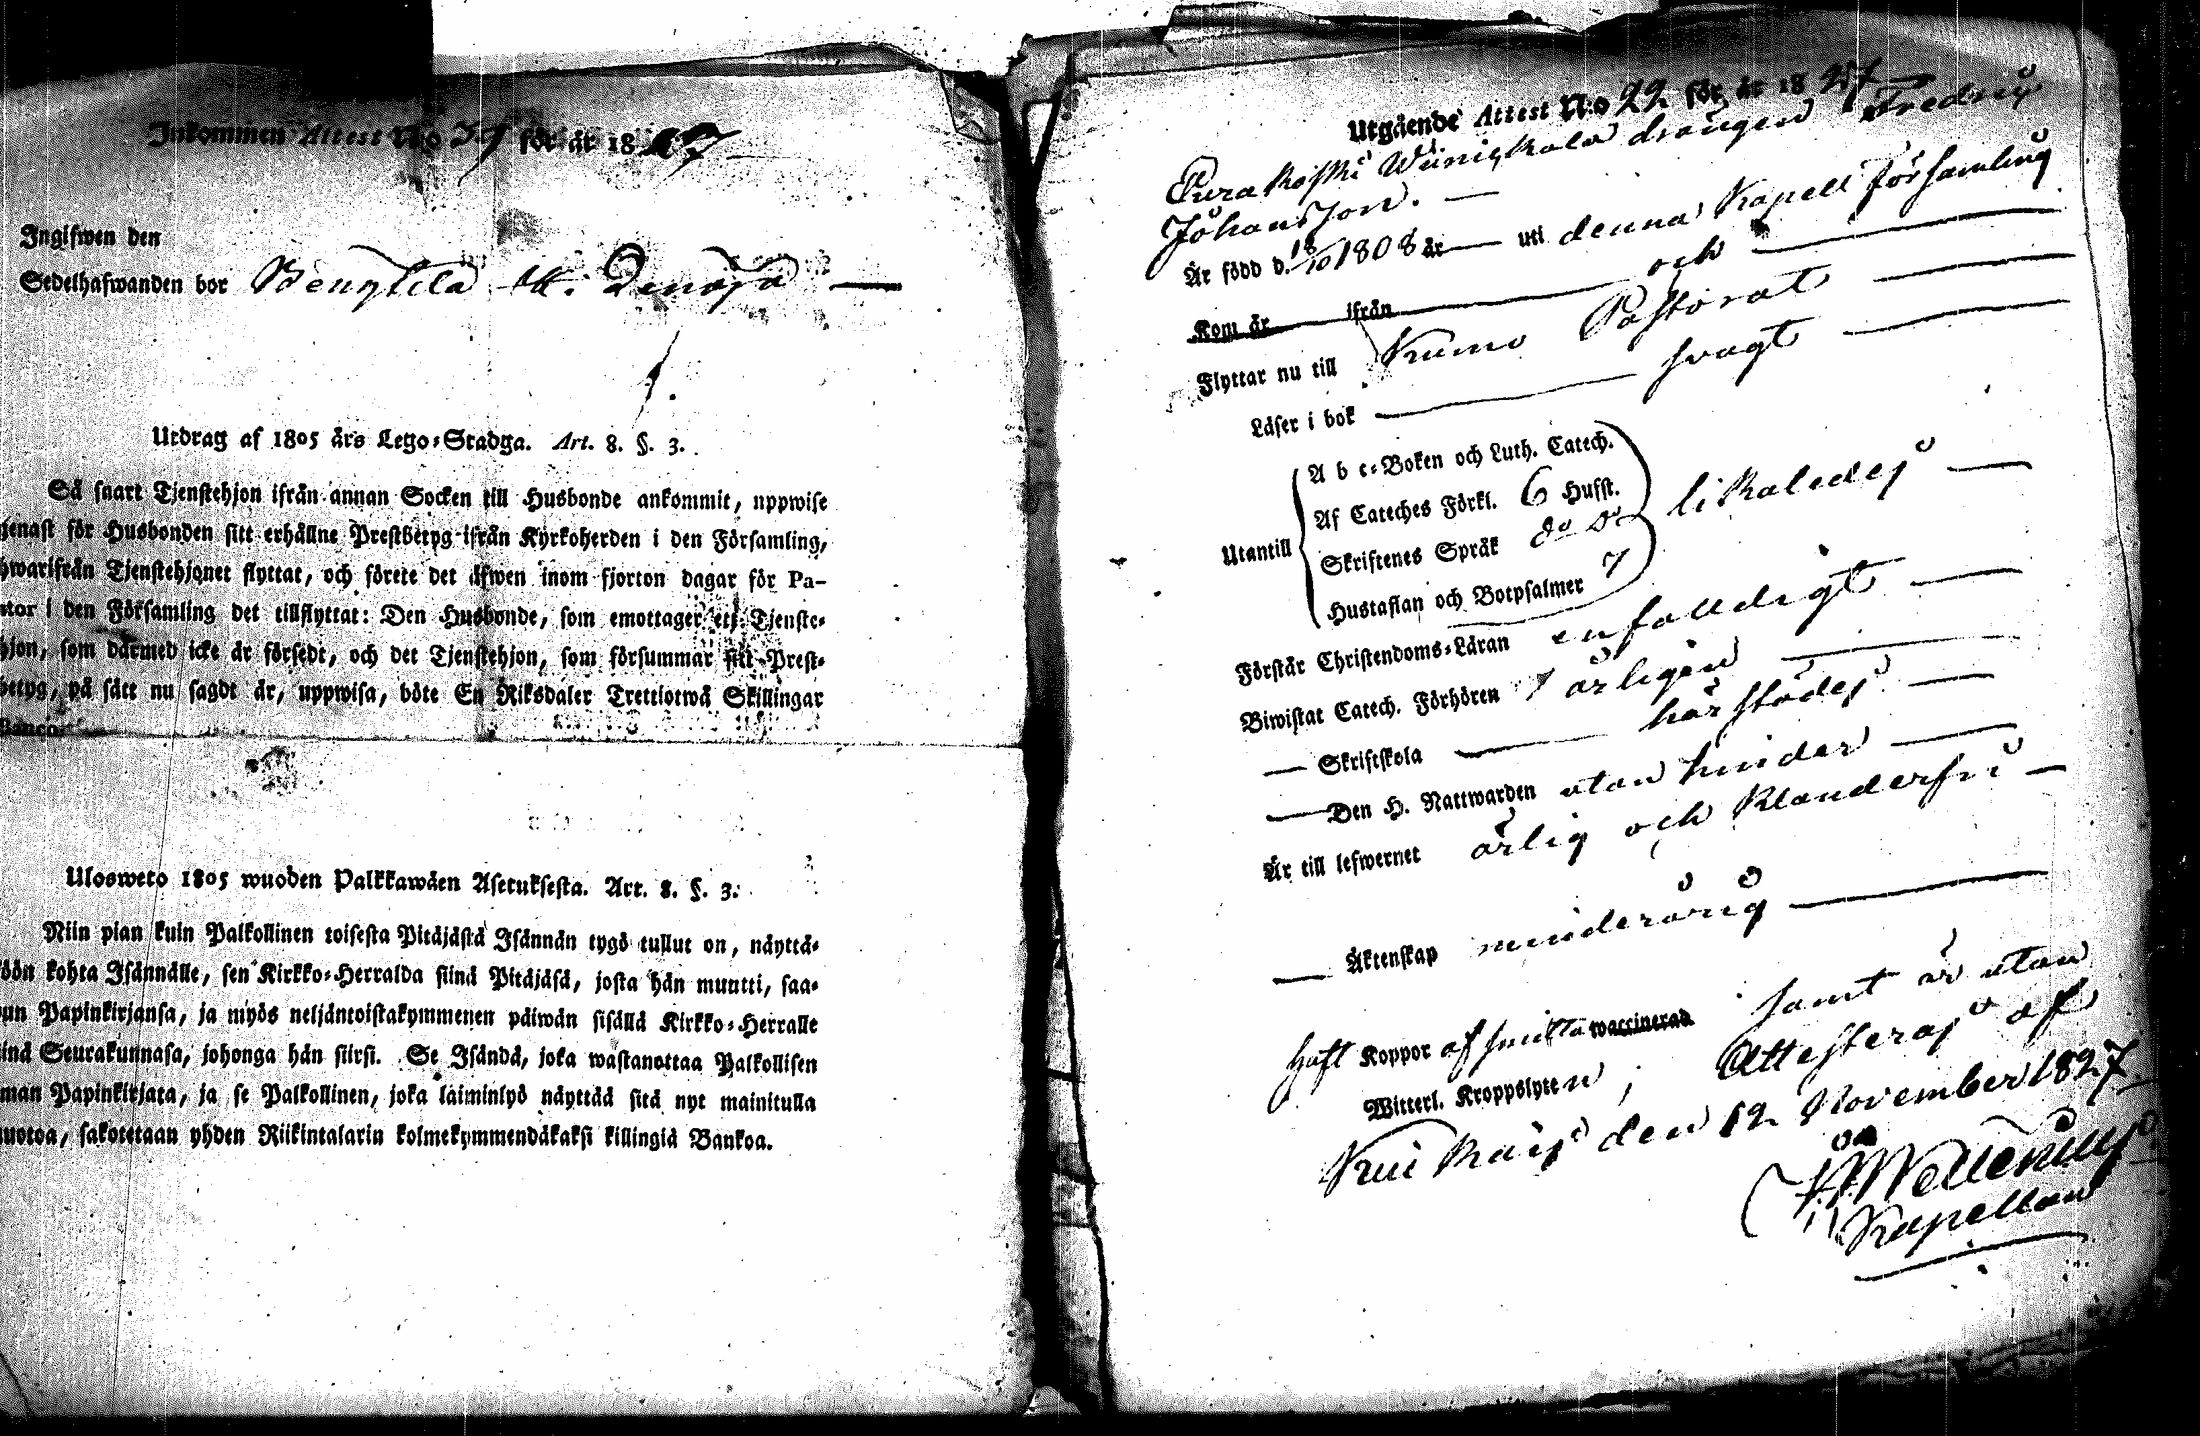 Inkommen Attest No 37 för år 1827
Ingifwen den
Sedelhafwanden bor Bengtila
Utdrag af 1805 års Lego-Stadga. Art. 8. §. 3.
Så snart Tjenstehjon ifrån annan Socken till Husbonde ankommit, uppwise
genast för Husbonden sitt erhållne Prestbetyg ifrån Kyrkoherden i den Församling,
hwarifrån Tjenstehjonet flyttat, och förete det äfwen inom fjorton dagar för Pa-
stor i den Församling det tillflyttat: Den Husbonde, som emottager ett Tjenste-
hjon, som därmed icke är försedt, och det Tjenstehjon, som försummar sitt Prest-
betyg, på sätt nu sagdt är, uppwisa, böte En Riksdaler Trettiotwå Skillingar
Banco.
Ulosweto 1805 wuoden Palkkawäen Asetuksesta. Art. 8. §. 3.
Niin pian kuin Palkollinen toisesta Pitäjästä Isännän tygö tullut on, näyttä-
köön kohta Isännälle, sen Kirkko-Herralda siinä Pitäjäsä, josta hän muutti, saa-
dun Papinkirjansa, ja myös neljäntoistakymmenen päiwän sisällä Kirkko-Herralle
siinä Seurakunnasa, johonga hän siirsi. Se Isändä, joka wastanottaa Palkollisen
ilman Papinkirjata, ja se Palkollinen, joka laiminlyö näyttää sitä nyt mainitulla
muotoa, sakotetaan yhden Riikintalarin kolmekymmendäkaksi killingiä Bankoa.
Utgående Attest No 22 för år 1827
Eurakoski Wänniskala drängen Fredric
Johansson.
Är född d. 18/10 1808 år uti denna Kapell församling
Kom år ifrån och
Flyttar nu till Kumo Pastorat
Läser i bok svagt
A b c-Boken och Luth. Catech.
Af Cateches Förkl. 6 Hufst.
Utantill Skriftenes Språk do do likaledes
Hustaflan och Botpsalmer 7
Förstår Christendoms-Läran enfalldigt
Biwistat Catech. Förhören årligen
— Skriftskola härstädes
— Den H. Nattwarden utan hinder
Är till lefwernet ärlig och klanderfri
— Äktenskap minderårig
haft Koppor af smitta waccinerad samt är utan
Witterl. Kroppslyten; Attesteras af
Kiukais den 12 November 1827
Kapellan